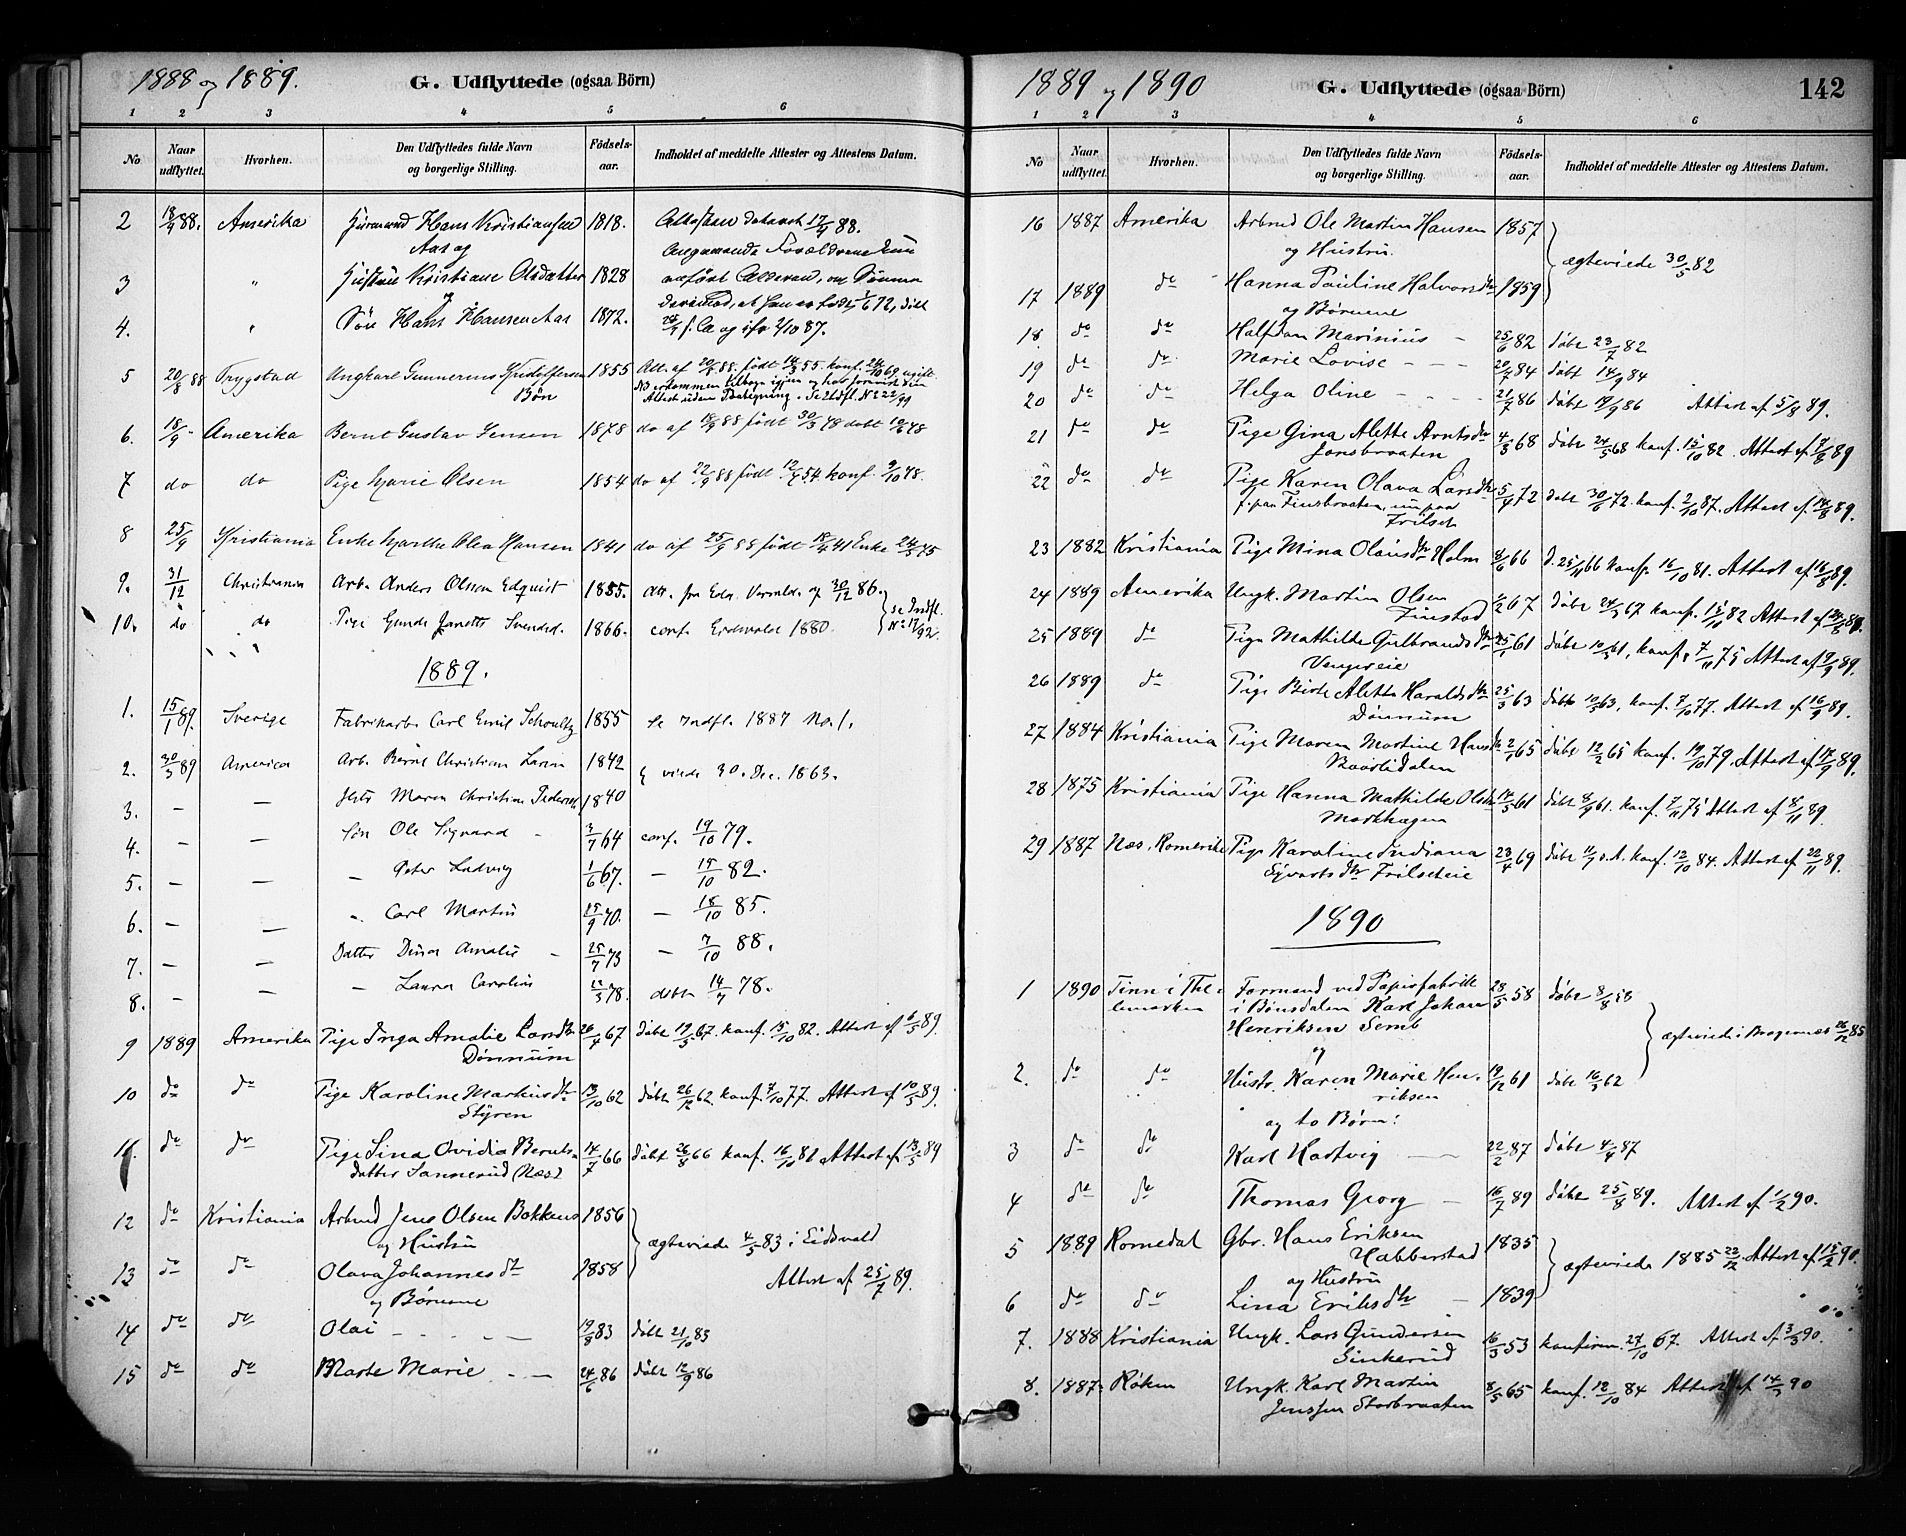 1888 og 1889.
G. Udflyttede (ogsaa Börn)
1 2 3 4 5 6
No Naar udflyttet. Hvorhen. Den Udflyttedes fulde Navn og borgerlige Stilling. Födsels-aar. Indholdet af meddelte Attester og Attestens Datum.
2 18/9 88. Amerika Hans Kristiansen 1818. Attesten dateret 17/9 88.
Aas og
3 " Hustru Kristiane Olsdatter 1828
og
4. " Søn Hans Hansen Aas 1872.
5 20/8 88 Trygstad Ungkarl Gunnerius Kristoffersen 1855 Att. af 20/8 88. født 14/3 55. konf. 24/10 69 ugift
Bøn
6. 18/9 - Amerika Bernt Gustav Jensen 1878 do af 18/9 88 født 30/3 78 døbt
7 do do Pige Marie Olsen 1854 do af 22/9 88 født 12/4 54 konf.
8 25/9 Kristiania Enke Marthe Olea Hansen 1841 do af 25/9 88 født 18/4 41 Enke
9. 31/12 Christiania Arb. Anders Olsson Edquist 1855. att. fra 30/12 86.
10. do do Pige Gunda Janette Svendsd. 1866. conf. Eidsvold 1880. se Indfl. No 17/92.
1889.
1. 15/1 89. Sverige Fabrikarb. Carl Emil Schoultz 1855 Se Indfl. 1887 No. 1.
2. 30/3 89 America Arb. Bernt Christian Larsen 1842 viede 30. Dec. 1863.
3. — — Hstr Maren Christine Pedersd. 1840
4. — — Søn Ole Sigvard - 3/7 64 conf. 19/10 79.
5. — — — Peter Ludvig 1/6 67. — 15/10 82.
6. — — " Carl Martin 25/9 70. — 18/10 85.
7. — — Datter Dina Amalie - 25/7 73 — 7/10 88.
8. — — — Laura Caroline 22/3 78. døbt 14/7 78.
9 1889 Amerika Pige Inga Amalie Larsdtr 26/4 67 døbt 19/5 67. konf. 15/10 82. Attest af 6/5 89.
Dønnum
10 do do Pige Karoline Markusdtr 13/10 62 døbt 26/12 62. konf. 7/10 77. Attest af 10/5 89.
Styren
11. do do Pige Lina Ovidia Bernts- 14/7 66 døbt 26/8 66 konf. 16/10 81 Attest af 13/5 89
datter Sannerud (Næs)
12 do Kristiania Arbmd Jens Olsen Bakken 1856
og Hustru ægteviede 4/5 83 i Eidsvold
13 do do Olava Johannesdtr 1858 Attest af 25/7 89.
og Børnene
14 do do Olai - - - - 19/8 83 døbt 21/10 83
15 do do Marte Marie - - 24/6 86 døbt 12/9 86
1889 og 1890
G. Udflyttede (ogsaa Börn)
142
1 2 3 4 5 6
No Naar udflyttet Hvorhen. Den Udflyttedes fulde Navn og borgerlige Stilling. Födsels-aar. Indholdet af meddelte Attester og Attestens Datum.
16 1887 Amerika Arbmd Ole Martin Hansen 1857
og Hustru. ægteviede 30/5 82
17 1889 do Hanna Pauline Halvorsdtr 1859
og Børnene
18. do do Halfdan Marinius - 25/6 82 døbt 23/7 82
19 do do Marie Lovise - - - 20/7 84 døbt 14/9 84
20 do do Helga Oline - - - - 21/7 86 døbt 19/9 86 Attest af 5/8 89.
21 do do Pige Gina Alette Arntsdtr 4/3 68 døbt 24/5 68 konf. 15/10 82. Attest af 7/8 89
Jonsbraaten
22 do do Pige Karen Olava Larsdtr 5/4 72 døbt 30/6 72. konf. 2/10 87. Attest af 14/8 89.
f. paa Finsbraaten, nu paa
Frilset
23 1882 Kristiania Pige Mina Olausdtr Holm 8/6 66 d. 25/11 66 konf. 16/10 81. Attest af 16/8 89.
24 1889 Amerika Ungk. Martin Olsen 1/2 67 døbt 24/3 67 konf. 15/11 82 Attest af 89.
Finstad
25 1889 do Pige Mathilde Gulbrandsdtr 25/1 61 døbt 10/3 61, konf. 7/11 75 Attest af 9/9 89.
26 1889 do Pige Birte Alette Haraldsdtr 25/3 63 døbt 10/5 63, konf. 7/10 77. Attest af 16/9 89.
Dønnum
27 1884 Kristiania Pige Maren Martine Hansdtr 2/1 65 døbt 12/2 65 konf. 19/10 79. Attest af 17/9 89.
28 1875 Kristiania Pige Hanna Mathilde Olsdtr 14/5 61 døbt 8/9 61. konf. 7/11 75 Attest af 8/11 89.
29 1887 Næs, Romerike Pige Karoline Indiana 23/4 69 døbt 11/7 s.A. konf. 12/10 84. Attest af 22/11 89.
Sivertsdtr Frilseteie
1890
1 1890 Tinn i The- Formand ved Papirfabrik 28/5 58 døbt 8/8 58
lemarken i Bønsdalen Karl Johan
Henriksen Semb ægteviede i Bragernes 26/12 85
og
2. do do Hustr. Karen Marie Hen- 19/12 61 døbt 16/3 62
riksen
og to Børn:
3 do do Karl Hartvig — 22/2 87 døbt 4/4 87
4 do do Thomas Georg — 16/7 89 døbt 25/8 89. Attest af 1/2 90.
5 1889 Romedal Gbr. Hans Eriksen 1835
Habberstad ægteviede 1885 22/12. Attest af 15/2 90.
og Hustru
6 do do Lina Eriksdtr — 1839
7. 1888 Kristiania Ungk. Lars Gundersen 16/3 53 konfirm. 27/10 67. Attest af 3/3 90.
Sinkerud
8. 1887 Røken Ungk. Karl Martin 8/5 65 konf. 12/10 84 Attest af 14/3 90
Jenssen Storbraaten